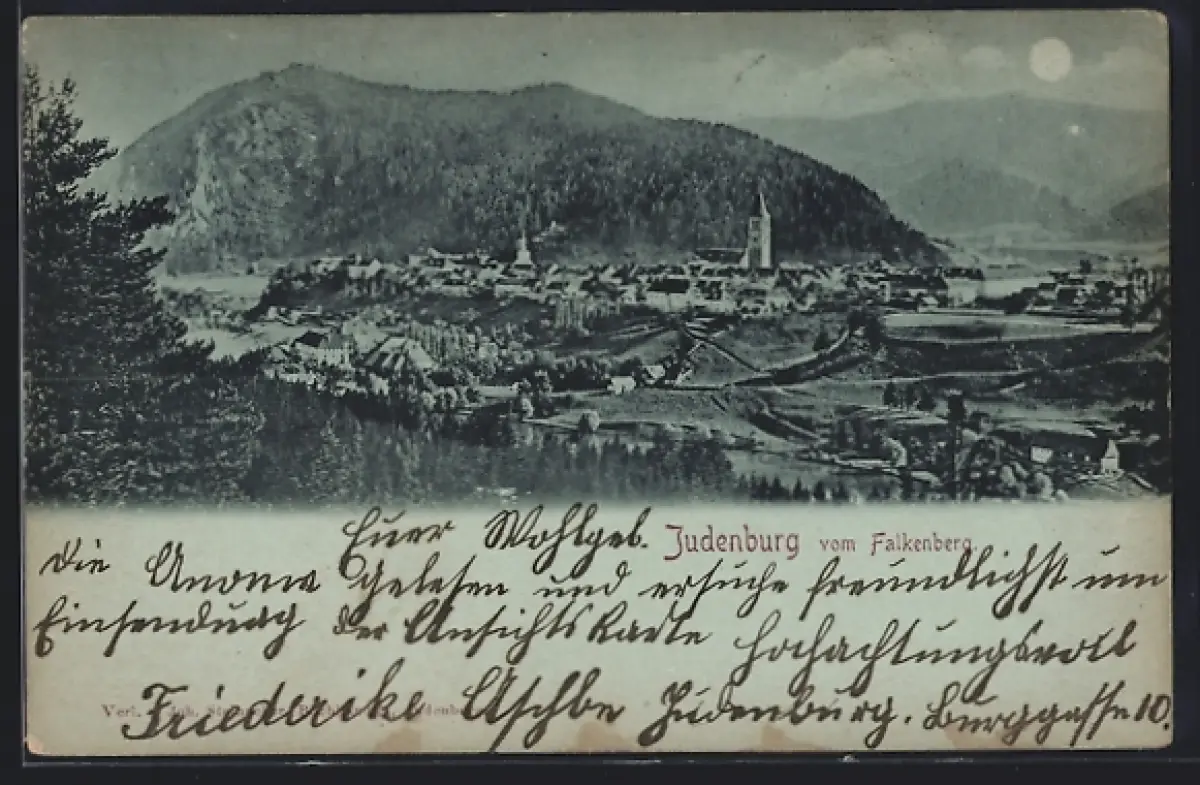 Euer Wohlgeb.
Judenburg vom Falkenberg.
Die Anonnce gelesen und ersuche freundlichst um
Einsendung der Ansichtskarte Hochachtungsvoll
Friederike Aschbe Judenburg. Burggasse 10.
Verl.